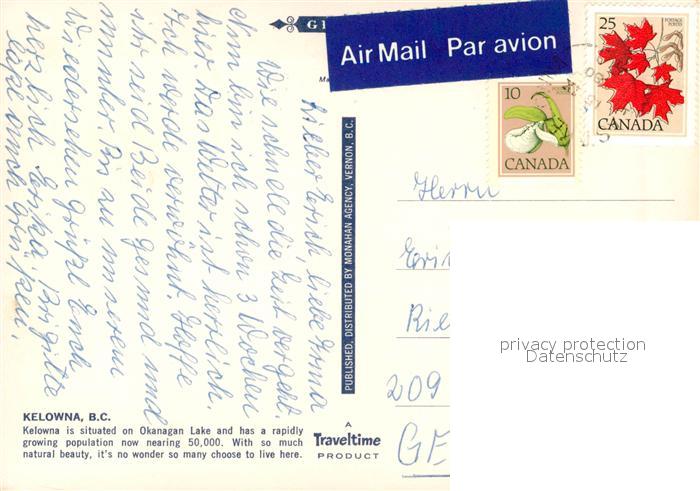 G
Air Mail Par avion
25
POSTAGE
POSTES
CANADA
10
CANADA
Lieber Erich, liebe Irma
Wie schnell die Zeit vergeht.
bin ich schon 3 Wochen
hier. Das Wetter ist herrlich.
Ich werde verwöhnt. Hoffe
ihr seid Beide gesund und
munter. Bis zu unserem
Wiedersehen grüßt Euch
herzlich Erika. Brigitte
läßt auch grüßen.
PUBLISHED, DISTRIBUTED BY MONAHAN AGENCY, VERNON, B.C.
Herrn
Eri
Rie
209
GE
privacy protection
Datenschutz
KELOWNA, B.C.
Kelowna is situated on Okanagan Lake and has a rapidly
growing population now nearing 50,000. With so much
natural beauty, it's no wonder so many choose to live here.
A
Traveltime
PRODUCT